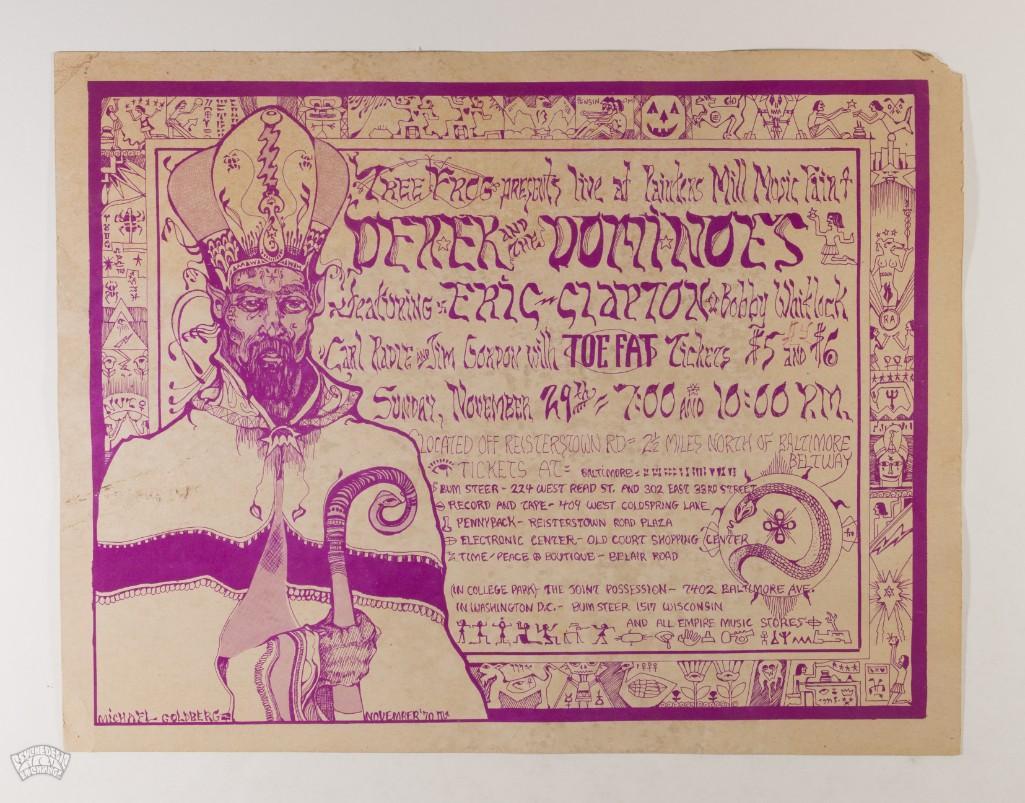 TREE FROG presents live at Painters Mill Music Fair
DEREK AND THE DOMINOES
featuring ERIC CLAPTON Bobby Whitlock
Carl Radle AND Jim Gordon with TOE FAT Tickets $5 AND $6
SUNDAY, NOVEMBER 29th = 7:00 AND 10:00 P.M.
LOCATED OFF REISTERSTOWN RD= 2½ MILES NORTH OF BALTIMORE
BELTWAY
TICKETS AT= BALTIMORE:
BUM STEER - 224 WEST READ ST. AND 302 EAST 33RD STREET
RECORD AND TAPE - 409 WEST COLDSPRING LANE
PENNYBACK - REISTERSTOWN ROAD PLAZA
ELECTRONIC CENTER - OLD COURT SHOPPING CENTER
TIME/PEACE BOUTIQUE - BELAIR ROAD
(IN COLLEGE PARK) THE JOINT POSSESSION - 7402 BALTIMORE AVE.
IN WASHINGTON D.C. - BUM STEER 1517 WISCONSIN
AND ALL EMPIRE MUSIC STORES
RA
MICHAEL GOLDBERG
NOVEMBER '70
PSYCHEDELIC ART EXCHANGE